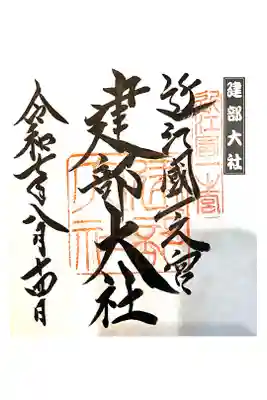 建部大社
近江國一之宮
建部大社
令和六年八月十四日